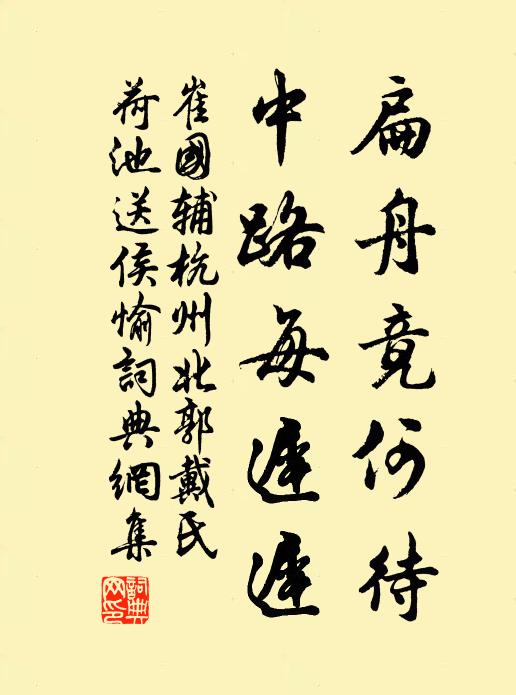 扁舟竟何待
中路每遲遲
崔國輔杭州北郭戴氏
荷池送侯愉詞典網集
詞典网印